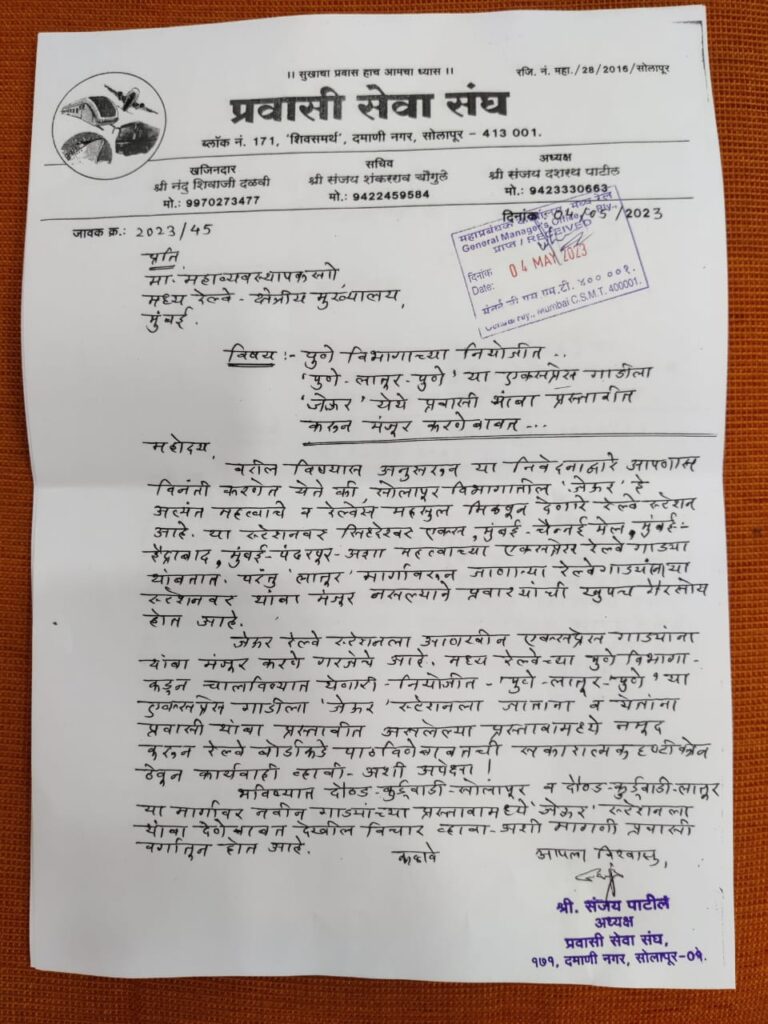 ।। सुखाचा प्रवास हाच आमचा ध्यास ।।
रजि. नं. महा./28/2016/सोलापूर
प्रवासी सेवा संघ
ब्लॉक नं. 171, 'शिवसमर्थ', दमाणी नगर, सोलापूर – 413 001.
खजिनदार
श्री नंदु शिवाजी दळवी
मो.: 9970273477
सचिव
श्री संजय शंकरराव चौगुले
मो.: 9422459584
अध्यक्ष
श्री संजय दशरथ पाटील
मो.: 9423330663
जावक क्र.: 2023/45
दिनांक 04/05/2023
General Manager's Office
प्राप्त / RECEIVED
दिनांक
Date: 04 MAY 2023
मुंबई सी एस एम टी. ४०० ००१.
Mumbai C.S.M.T. 400001.
प्रति
मा. महाव्यवस्थापक सो,
मध्य रेल्वे - क्षेत्रीय मुख्यालय,
मुंबई.
विषय :- पुणे विभागाच्या नियोजीत ..
'पुणे-लातूर-पुणे' या एक्सप्रेस गाडीला
'जेऊर' येथे प्रवासी थांबा प्रस्तावीत
करून मंजूर करणेबाबत ...
महोदय,
वरील विषयास अनुसरून या निवेदनाद्वारे आपणास
विनंती करणेत येते की, सोलापूर विभागातील 'जेऊर' हे
अत्यंत महत्वाचे व रेल्वेस महसुल मिळवून देणारे रेल्वे स्टेशन
आहे. या स्टेशनवर सिद्धेश्वर एक्स, मुंबई-चैन्नई मेल, मुंबई-
हैद्राबाद, मुंबई-पंढरपूर-अशा महत्वाच्या एक्सप्रेस रेल्वे गाड्या
थांबतात. परंतु 'लातूर' मार्गावरून जाणाऱ्या रेल्वेगाड्यांना या
स्टेशनवर थांबा मंजूर नसल्याने प्रवाश्यांची खुपच गैरसोय
होत आहे.
जेऊर रेल्वे स्टेशनला आणखीन एक्सप्रेस गाड्यांना
थांबा मंजूर करणे गरजेचे आहे. मध्य रेल्वेच्या पुणे विभागा-
कडून चालविण्यात येणारी - नियोजीत - 'पुणे-लातूर-पुणे' या
एक्सप्रेस गाडीला 'जेऊर' स्टेशनला जाताना व येताना
प्रवासी थांबा प्रस्तावीत असलेल्या प्रस्तावामध्ये नमूद
करून रेल्वे बोर्डाकडे पाठविणेबाबतची सकारात्मक दृष्टीकोन
ठेवून कार्यवाही व्हावी - अशी अपेक्षा !
भविष्यात दौण्ड-कुर्डूवाडी-सोलापूर व दौण्ड-कुर्डूवाडी-लातूर
या मार्गावर नवीन गाड्यांच्या प्रस्तावामध्ये 'जेऊर' स्टेशनला
थांबा देणेबाबत देखील विचार व्हावा - अशी मागणी प्रवासी
वर्गातून होत आहे.
कळावे
आपला विश्वासु,
श्री. संजय पाटील
अध्यक्ष
प्रवासी सेवा संघ,
१७१, दमाणी नगर, सोलापूर-०१.